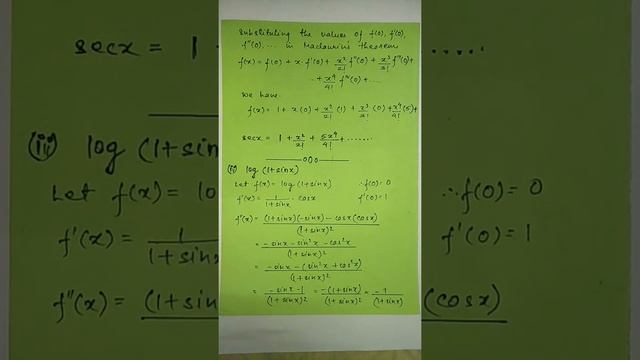 Substituting the values of f(0), f'(0),
f''(0), ... in Maclaurin's theorem
f(x) = f(0) + x · f'(0) + x²/2! f''(0) + x³/3! f'''(0) +
.. + x⁴/4! fⁱᵛ(0) + ...
We have
f(x) = 1 + x(0) + x²/2! (1) + x³/3! (0) + x⁴/4! (5) +
secx = 1 + x²/2! + 5x⁴/4! + .......
000
(ii) log (1+sinx)
Let f(x) = log(1+sinx) ∴ f(0) = 0
f'(x) = 1/(1+sinx) · cosx f'(0) = 1
f''(x) = ((1+sinx)(-sinx) - cosx(cosx))/(1+sinx)²
= (-sinx - sin²x - cos²x)/(1+sinx)²
= (-sinx - (sin²x + cos²x))/(1+sinx)²
= (-sinx - 1)/(1+sinx)² = -(1+sinx)/(1+sinx)² = -1/(1+sinx)